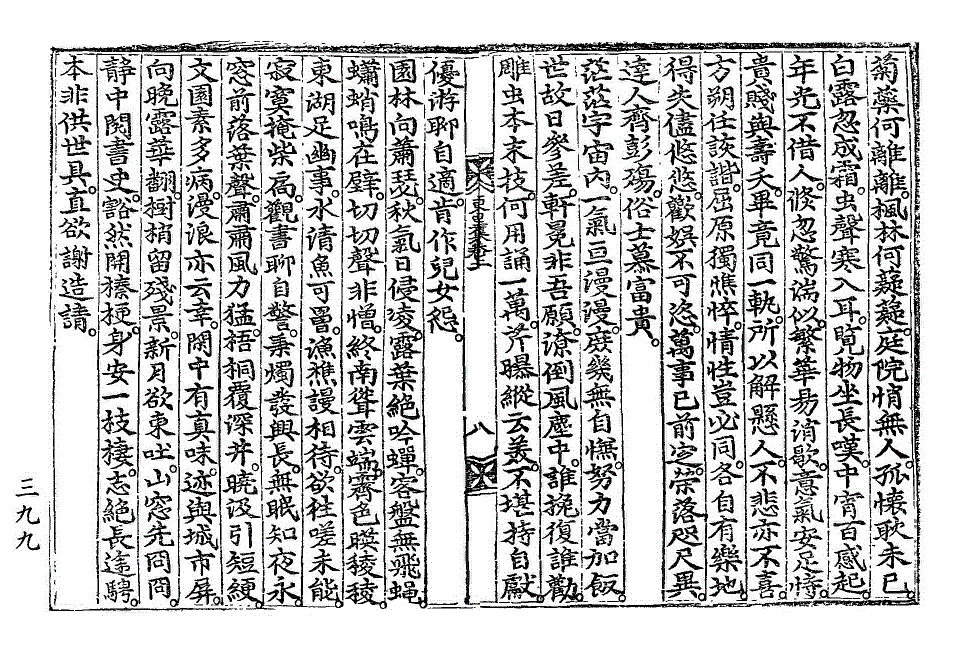 菊藥何離離楓林何蕤蕤庭院悄無人孤懷耿未已
白露忽成霜虫聲寒入耳覽物坐長嘆中宵百感起
年光不借人倐忽驚湍似繁華易消歇意氣安足恃
貴賤與壽夭畢竟同一軌所以解懸人不悲亦不喜
方朔任詼諧屈原獨憔悴情性豈必同各自有樂地
得失儘悠悠歡娛不可恣萬事已前定榮落咫尺異
達人齊彭殤俗士慕富貴
茫茫宇宙內一氣亘漫漫庻幾無自憮努力當加飯
世故日參差軒冕非吾願潦倒風塵中誰挽復誰勸
雕虫本末技何用誦一萬芹曝縱云美不堪持自獻
八
優游聊自適肯作兒女怨
園林向蕭瑟秋氣日侵凌露葉絶吟蟬客盤無飛蝇
蠨蛸鳴在壁切切聲非憎終南聳雲端霽色暎稜稜
東湖足幽事水清魚可罾漁樵謾相待欲往嗟未能
寂寞掩柴扄觀書聊自警秉燭發興長無眠知夜永
窓前落葉聲肅肅風力猛梧桐覆深井曉汲引短綆
文園素多病漫浪亦云幸閑中有真味迹與城市屏
向晚露華翻樹梢留殘景新月欲東吐山窓先冏冏
静中閱書史豁然開榛梗身安一枝棲志絕長途騁
本非供世具直欲謝造請
三九九